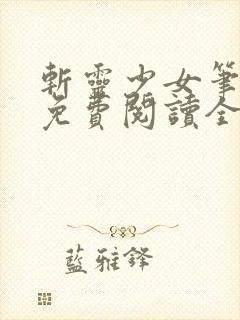 斬靈少女筆
免費閱讀全
藍雅鋒